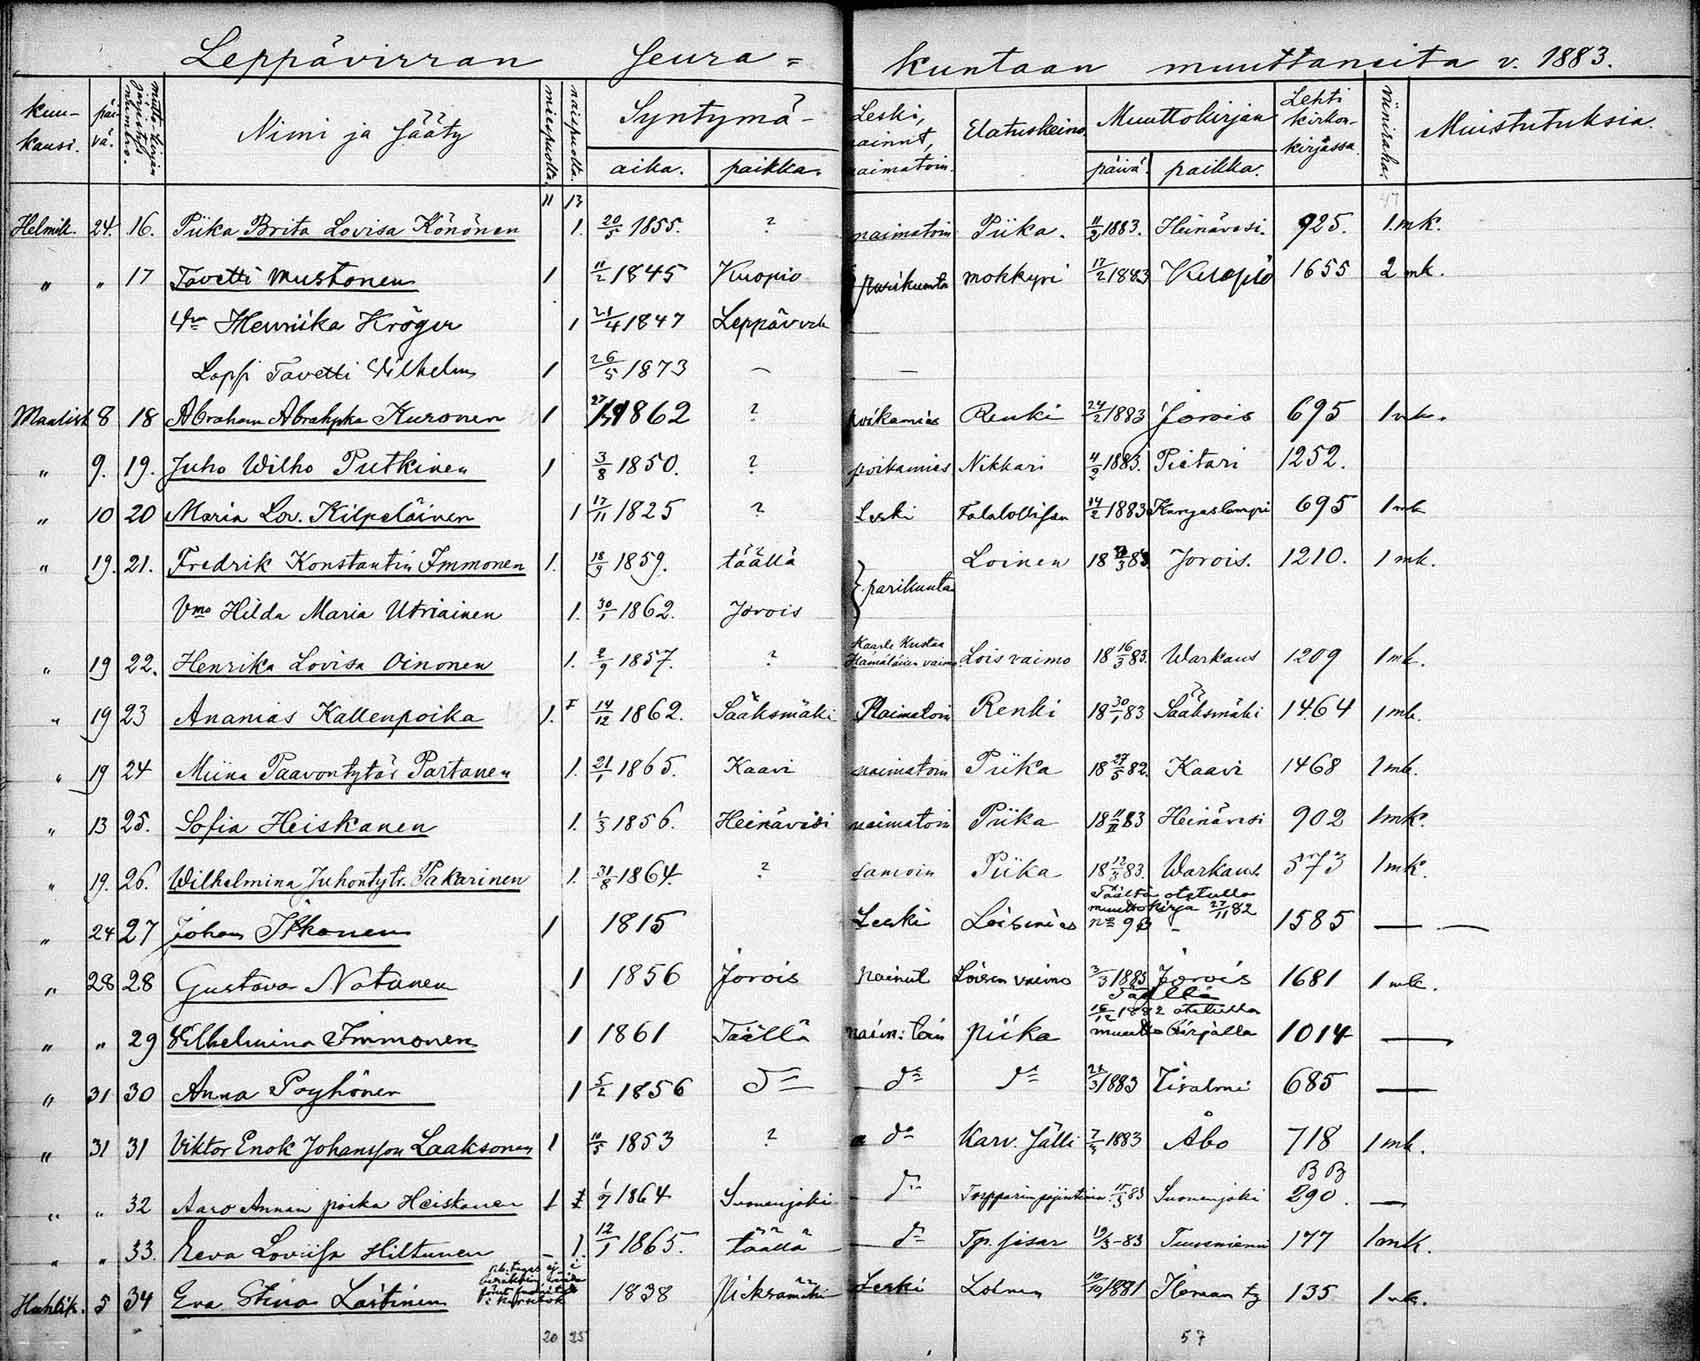 Leppävirran Seura= kuntaan muuttaneita v. 1883.
kuu-kausi. päi-vä. muuttokirjan järjestys numbero. Nimi ja Sääty miespuolta. naispuolta. Syntymä- aika. paikka. Leski, nainut, naimatoin. Elatuskeino Muuttokirjan päivä. paikka. Lehti kirkon-kirjassa. niiniraha. Muistutuksia.
11 13
Helmik. 24. 16. Piika Brita Lovisa Könönen 1. 20/5 1855. ? naimatoin Piika. 11/2 1883. Heinävesi. 925. 1 mk.
" " 17 Tavetti Mustonen 1 11/2 1845 Kuopio parikunta 17/2 1883 Kuopio 1655 2 mk.
Vm Henriika Kröger 1 21/4 1847 Leppävirta —
Lapsi Tavetti Vilhelm 1 26/5 1873 — —
Maalisk 8 18 Abraham Kuronen 1 1862 ? poikamies Renki 24/2 1883 Jorois 695 1 mk.
" 9. 19. Juho Wilho Putkinen 1 3/8 1850. ? poikamies Nikkari 4/2 1883. Pietari 1252.
" 10 20 Maria Lov. Kilpeläinen 1 17/11 1825 ? Leski 14/2 1883 Kangaslampi 695 1 mk
" 19. 21. Fredrik Konstantin Immonen 1. 18/9 1859. täällä } parikunta Loinen 18 83 Jorois. 1210. 1 mk.
Vmo Hilda Maria Utriainen 1. 30/1 1862. Jorois
" 19 22. Henrika Lovisa Oinonen 1. 2/9 1857. ? Kaarle Kustaa Hämäläisen vaimo Lois vaimo 18 16/3 83. Warkaus 1209 1 mk.
" 19 23 Ananias Kallenpoika 1. 14/12 1862. Sääksmäki Naimatoin Renki 18 30/1 83 Sääksmäki 1464 1 mk.
" 19 24 Miina Paavontytär Partanen 1. 21/1 1865. Kaavi naimatoin Piika 18 82. Kaavi 1468 1 mk.
" 13 25. Sofia Heiskanen 1. 1/3 1856. Heinävesi naimatoin Piika 18 83 Heinävesi 902 1 mk.
" 19. 26. Wilhelmina Juhontytr. Pakarinen 1. 31/8 1864. ? samoin Piika 18 12/3 83. Warkaus 573 1 mk.
" 24 27 Johan Itkonen 1 1815 Leski Loismies Täältä otetulla muuttokirja 27/11 82 1585 — —
" 28 28 Gustava Natunen 1 1856 Jorois Nainut Loisen vaimo 3/3 1883 Jorois 1681 1 mk.
" " 29 Vilhelmina Immonen 1 1861 Täällä naim: toin piika Täällä 16/12 1882 otetulla muutto kirjalla 1014 —
" 31 30 Anna Poyhönen 1 5/2 1856 d= d= d= 1883 Iisalmi 685 —
" 31 31 Viktor Enok Johansson Laaksonen 1 10/5 1853 ? do Karv. Sälli 1883 Åbo 718 1 mk.
" " 32 Aaro Annan poika Heiskanen 1 1 1/7 1864 Suonenjoki do 83 Suonenjoki BB 290. —
" " 33. Eeva Loviisa Hiltunen – 1. 12/1 1865. täällä do Tp. sisar 19/3-83 Tuusniemi 147 1 mk.
Huhtik. 5 34 Eva Stina Laitinen 1838 Pieksämäki Leski Loinen 1881 135 1 mk.
20 25 57